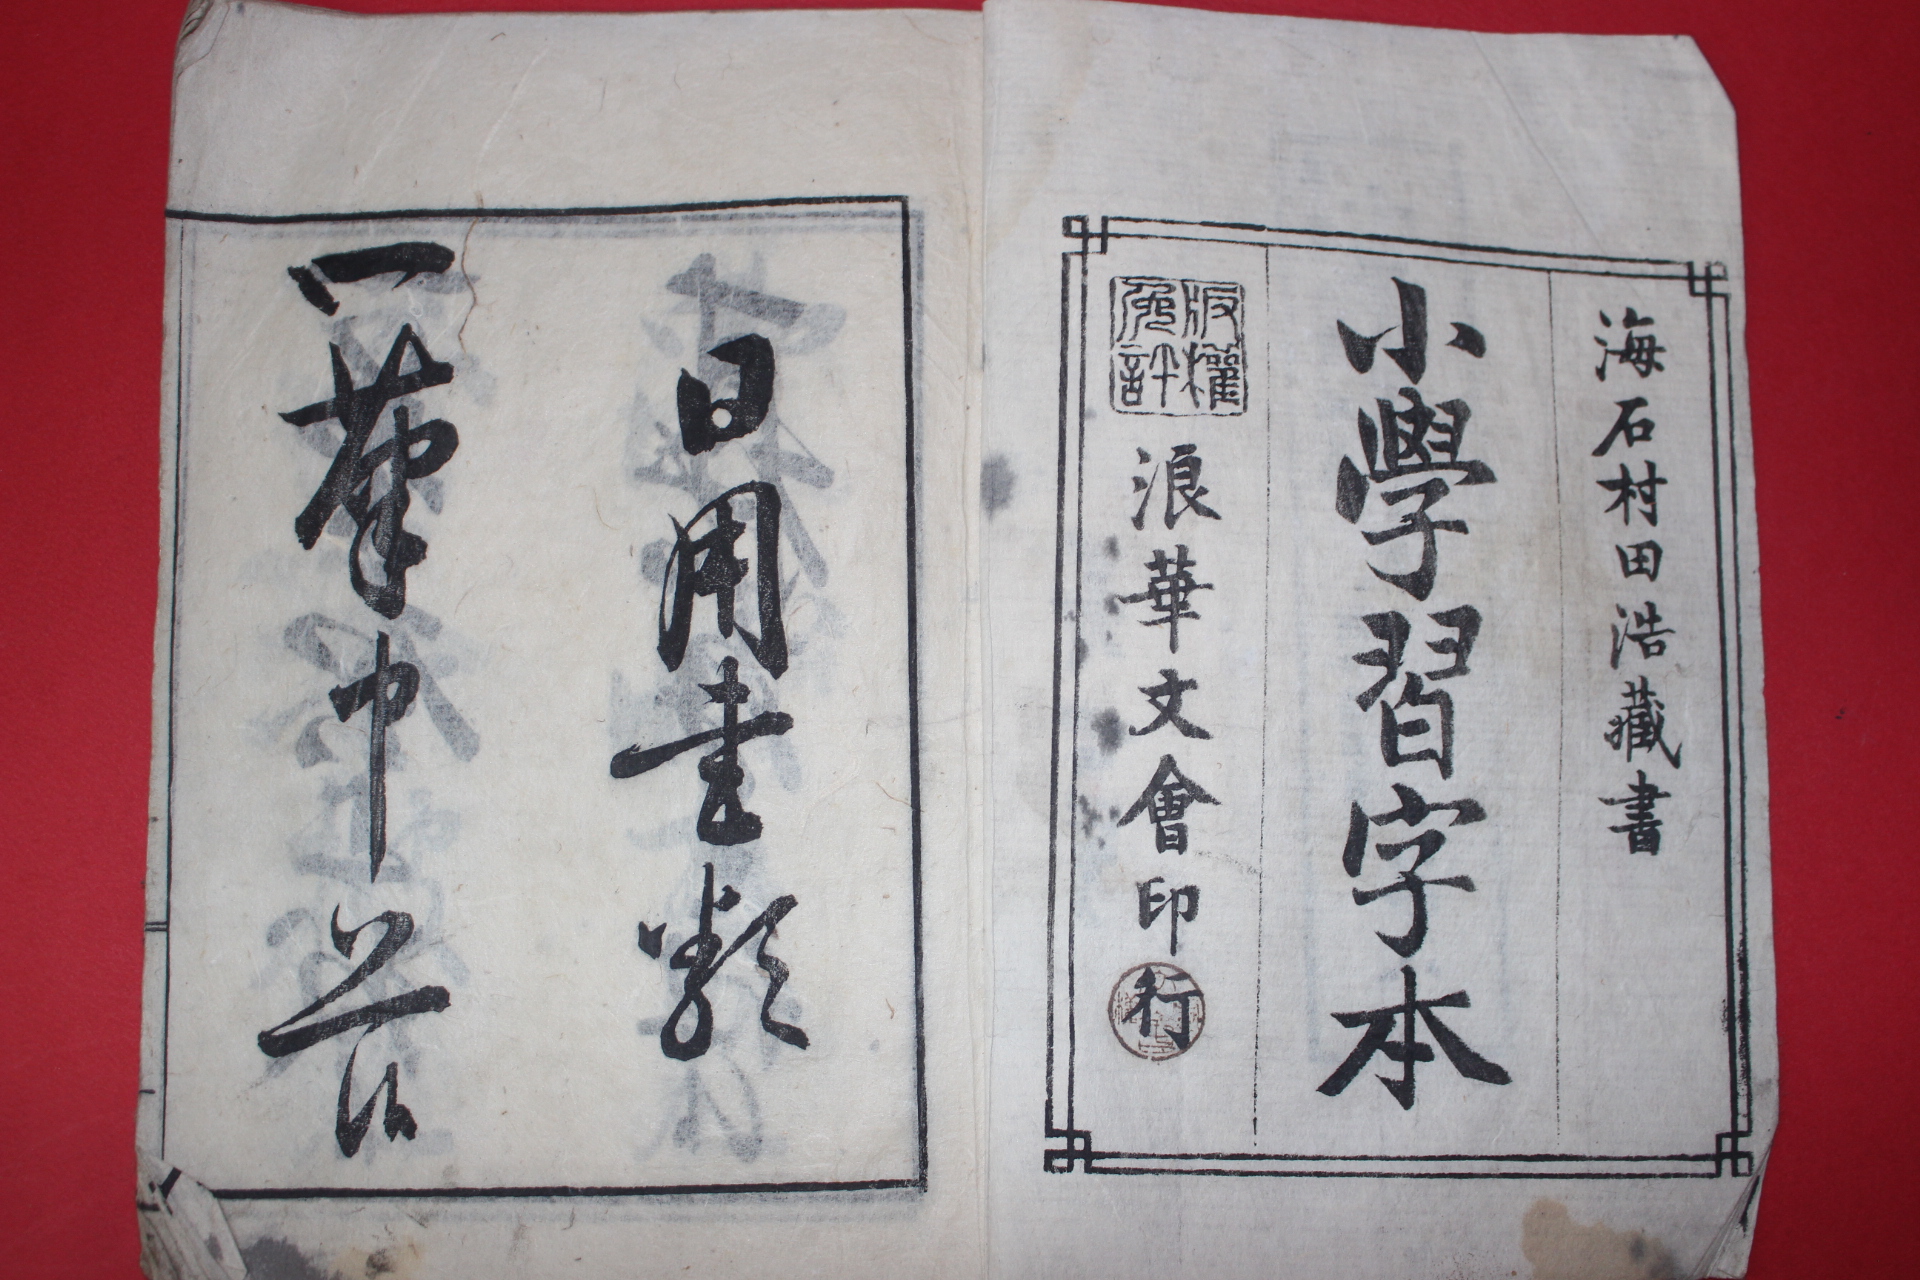 海石村田浩藏書
小學習字本
版權
免許
浪華文會印行
日用書類
一筆申上候